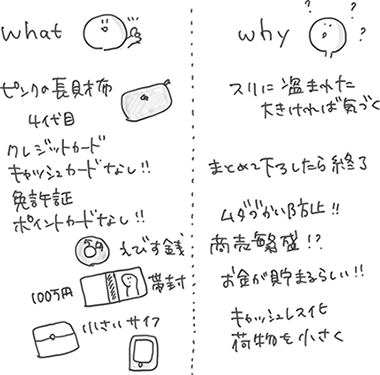 what
ピンクの長財布
4代目
クレジットカード
キャッシュカードなし!!
免許証
ポイントカードなし!!
えびす銭
100万円 帯封
小さいサイフ
why
? ? ?
スリに盗まれた
大きければ気づく
まとめて下ろしたら終了
ムダづかい防止!!
商売繁盛!?
お金が貯まるらしい!!
キャッシュレス化
荷物を小さく